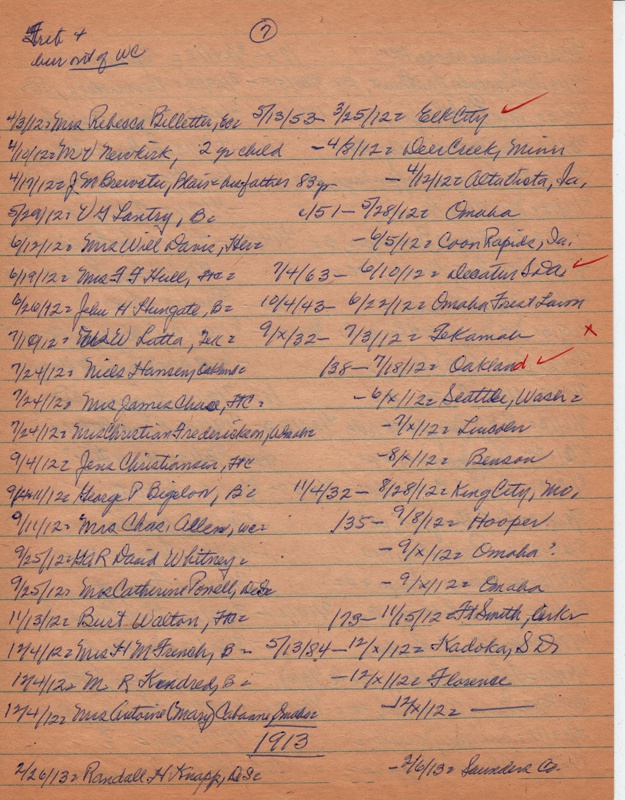 7
bur out of WC
4/3/12= Mrs Rebecca Billetter, Ec= 5/13/53- 3/25/12= Elk City
4/10/12= Newkirk, 2 yr child - 4/8/12= Deer Creek, Minn
4/17/12= J M Brewster, Blair= father 83 yr - 4/12/12= Alta Vista, Ia,
5/29/12= Lantry, B= /51- 5/28/12= Omaha
6/12/12= Mrs Will Davis, Her= - 6/5/12= Coon Rapids, Ia.
6/19/12= Mrs Hull, 7/4/63- 6/10/12= Decatur
6/26/12= John H Hungate, B= 10/4/43- 6/22/12= Omaha Forest Lawn
7/10/12= W Latta, Tek= 9/x/32- 7/3/12= Tekamah x
7/24/12= Niels Hansen, /38- 7/18/12= Oakland
7/24/12= Mrs James Chase, FtC= - 6/x/12= Seattle,
7/24/12= Mrs Christian Frederickson, - 7/x/12= Lincoln
9/4/12= Jens Christiansen, FtC - 8/x/12= Benson
George P Bigelow, B= 11/4/32- 8/28/12= King City, Mo.
9/11/12= Mrs Chas. Allen, wc= /35- 9/8/12= Hooper
9/25/12= David Whitney= - 9/x/12= Omaha?
9/25/12= Mrs Catherine Powell, - 9/x/12= Omaha
11/13/12= Burt Walton, FtC= /79- 11/15/12= Ft Smith, Ark
12/4/12= Mrs H M French, B= 5/13/84-12/x/12= Kadoka, S D
12/4/12= M R Kendred, B= -12/x/12= Florence
12/4/12= Mrs Antoine (Mary) Cabanne, Omaha= -12/x/12=
1913
2/26/13= Randall H Knapp, DeS= -2/6/13= Saunders Co.